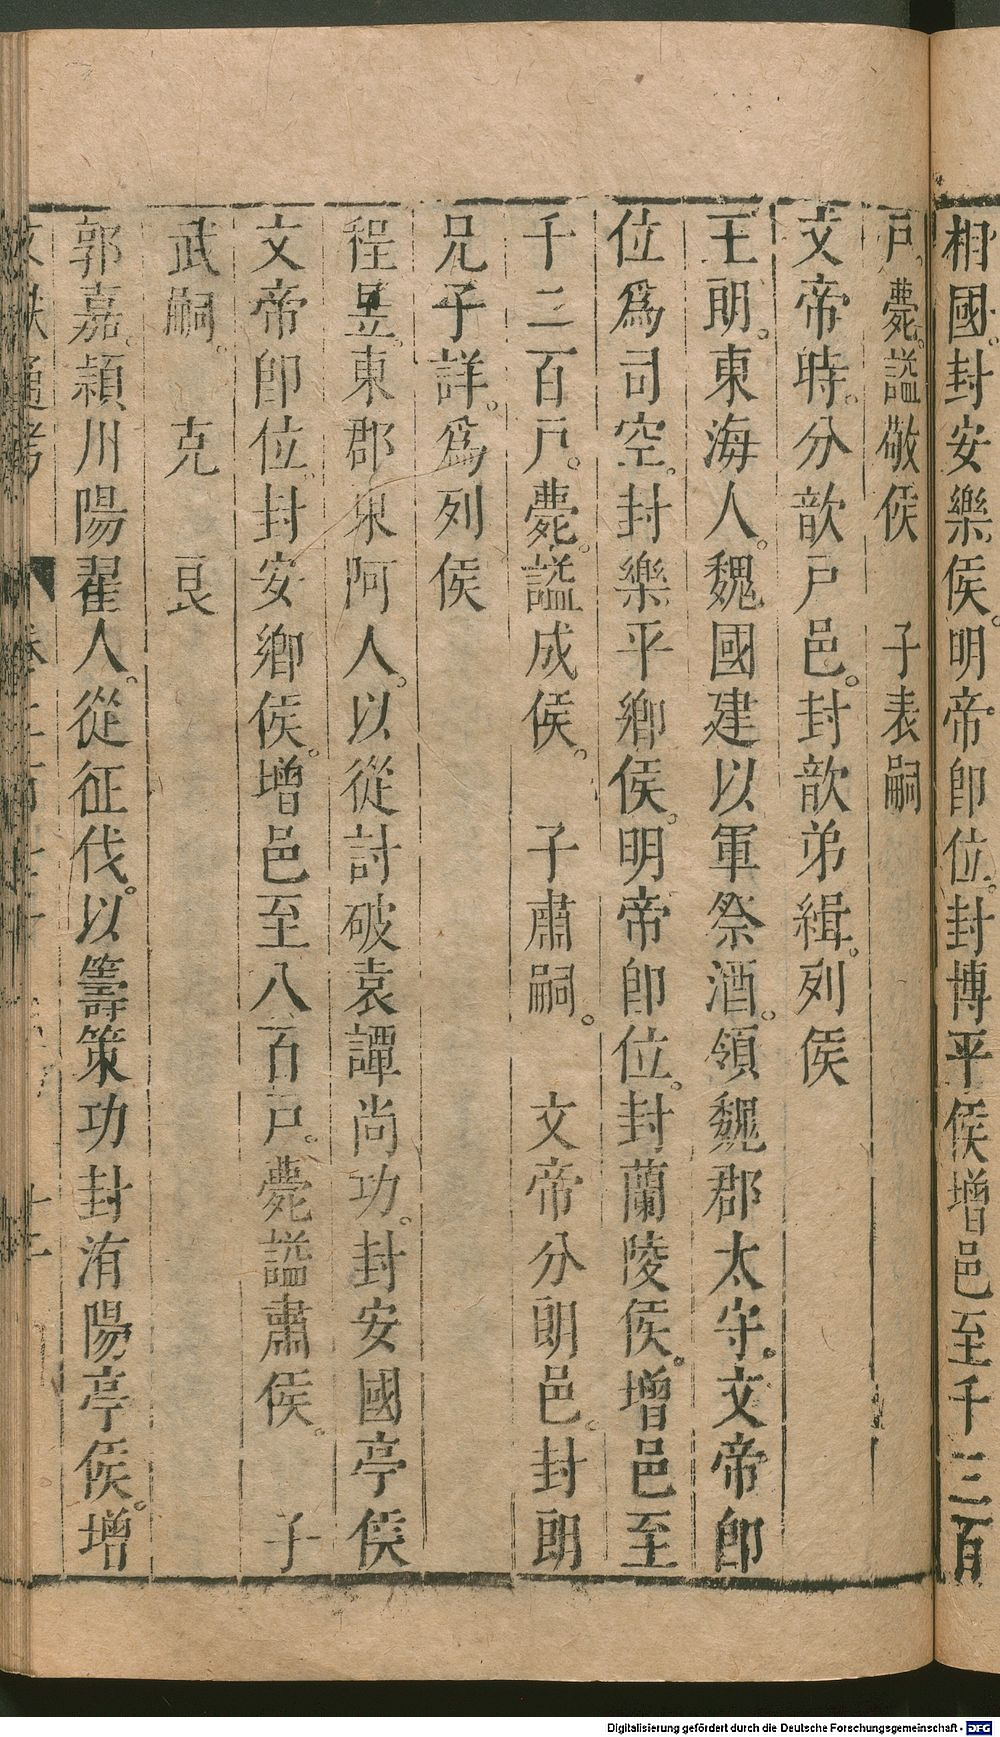 相國封安樂侯。明帝卽位。封博平侯增邑至千三百
戸。薨。諡敬侯　子表嗣
文帝時。分歆戸邑。封歆弟緝。列侯
王朗。東海人。魏國建以軍祭酒。領魏郡太守。文帝卽
位爲司空。封樂平鄉侯。明帝卽位。封蘭陵侯。增邑至
千二百戸。薨。諡成侯。　子肅嗣。　文帝分朗邑。封朗
兄子詳。爲列侯
程昱。東郡東阿人。以從討破袁譚尚功。封安國亭侯
文帝卽位。封安鄉侯。增邑至八百戸。薨諡肅侯。　子
武嗣。　克　良
郭嘉。潁川陽翟人。從征伐。以籌策功封洧陽亭侯。增
通考　卷二百七十　十二
Digitalisierung gefördert durch die Deutsche Forschungsgemeinschaft - DFG